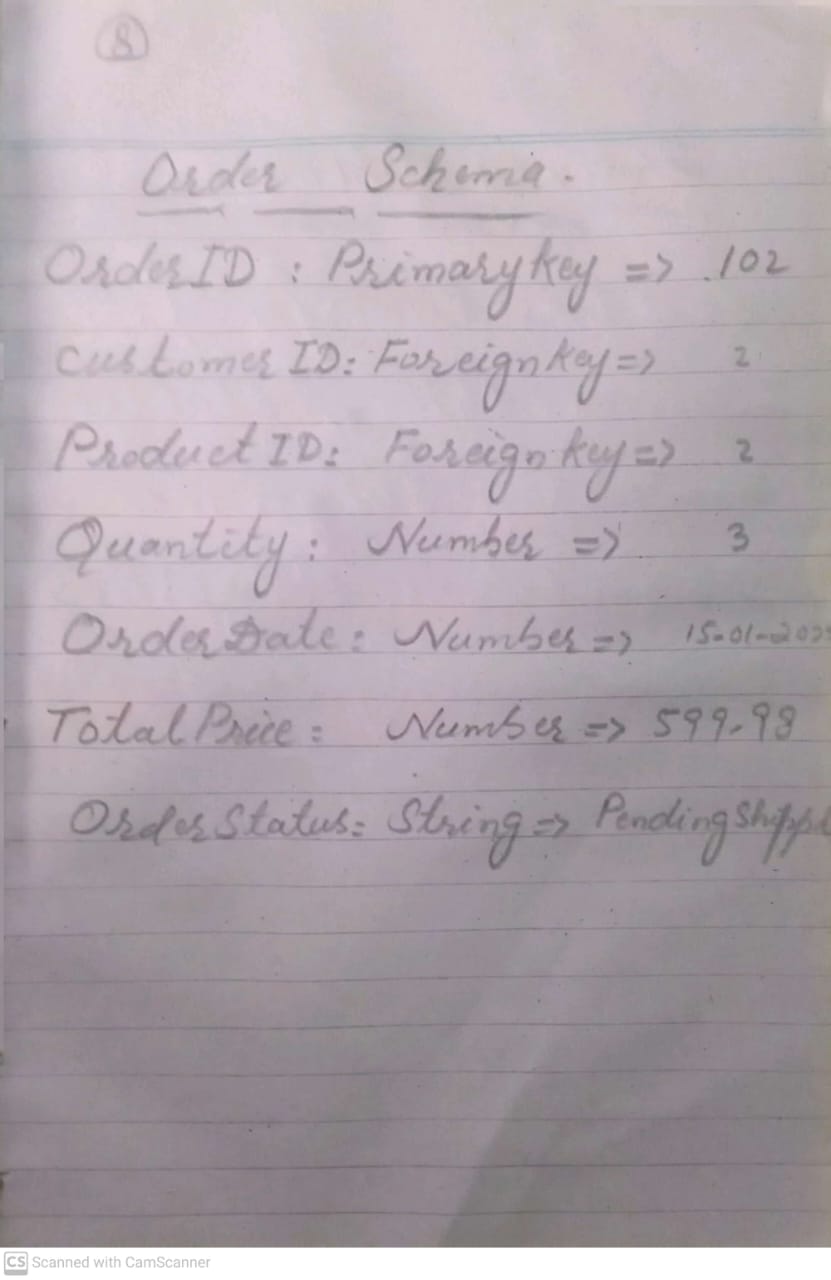 8
Order Schema.
OrderID : Primary key => .102
Customer ID: Foreign key => 2
Product ID: Foreign key => 2
Quantity : Number => 3
Order Date : Number => 15-01-
Total Price : Number => 599.98
Order Status: String => Pending
CS Scanned with CamScanner